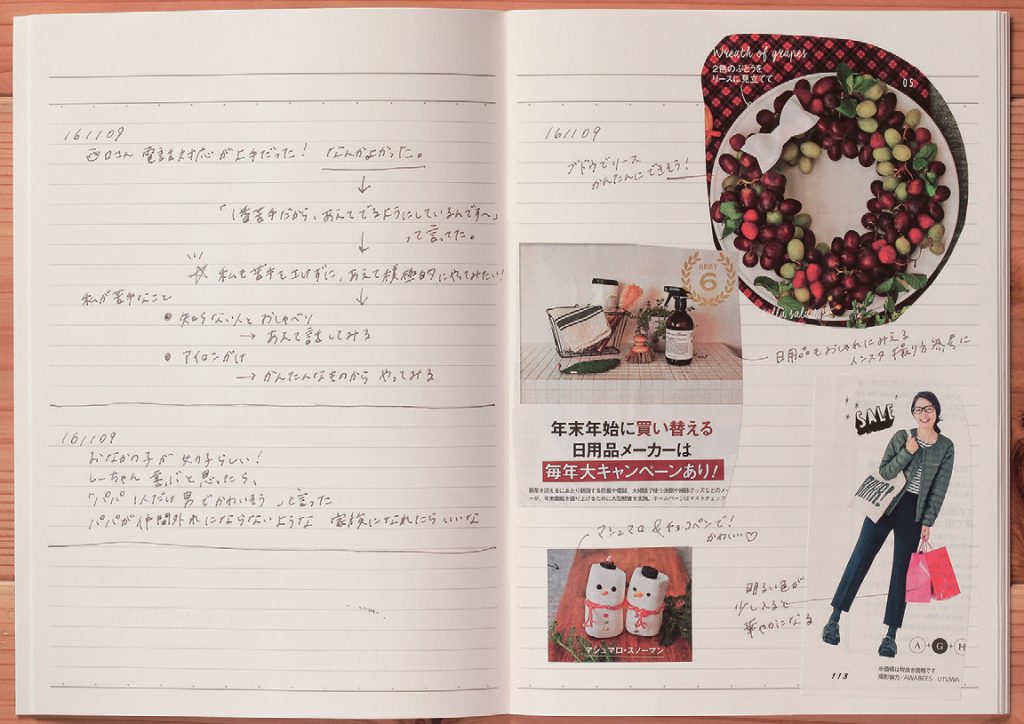 161109
西口さん 電話対応が上手だった! なんかよかった。
↓
「1番苦手だから、あえてでるようにしているんです〜」
って言ってた。
↓
☆私も苦手を上げずに、あえて積極的にやってみたい!
↓
私が苦手なこと
●知らない人とおしゃべり
→あえて話してみる
●アイロンがけ
→かんたんなものから やってみる
161109
おなかの子が女の子らしい!
しーちゃん喜ぶと思ったら、
「パパ1人だけ男でかわいそう」と言った
パパが仲間外れにならないような 家族になれたらいいな
161109
ブドウでリース
かんたんにできそう!
Wreath of grapes
2色のぶどうを
リースに見立てて
05
BEST
6
日用品もおしゃれにみえる
インスタ 撮り方 参考に
年末年始に買い替える
日用品メーカーは
毎年大キャンペーンあり!
マシュマロ&チョコペンで!
かわいい♡
マシュマロ・スノーマン
SALE
明るい色が
少し入ると
華やかになる
A+G+H
113
※価格は税抜き価格です
撮影協力/AWABEES UTUWA